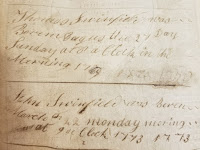 Thomas Swinfield was
Boren August the 27 Day
Sunday at 2 a Clock in the
Morning
John Swinfield was boren
March 22 monday morning
at 9 a Clock 1773 1773